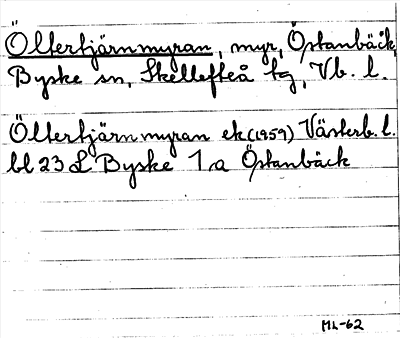 Öltertjärnmyran, myr, Östanbäck,
Byske sn, Skellefteå tg, Vb. l.
Öltertjärnmyran ek (1959) Västerb. l.
bl 23 L Byske 1a Östanbäck
ML-62